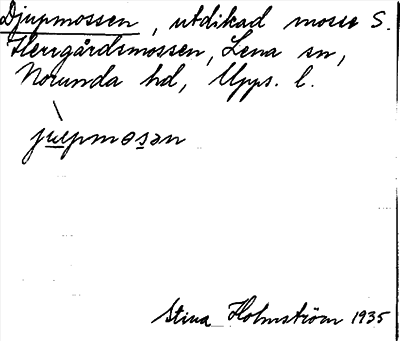 Djupmossen, utdikad mosse S.
Herrgårdsmossen, Lena sn,
Norunda hd, Upps. l.
Stina Holmström 1935